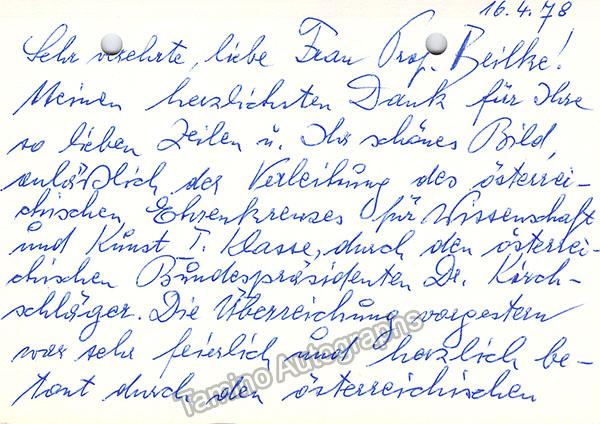 16.4.78
Sehr verehrte, liebe Frau Prof. Beilke!
Meinen herzlichsten Dank für Ihre
so lieben Zeilen u. Ihr schönes Bild,
anläßlich der Verleihung des österrei-
chischen Ehrenkreuzes für Wissenschaft
und Kunst I. Klasse, durch den österrei-
chischen Bundespräsidenten Dr. Kirch-
schläger. Die Überreichung vorgestern
war sehr feierlich und herzlich be-
tont durch den österreichischen
Tamino Autographs